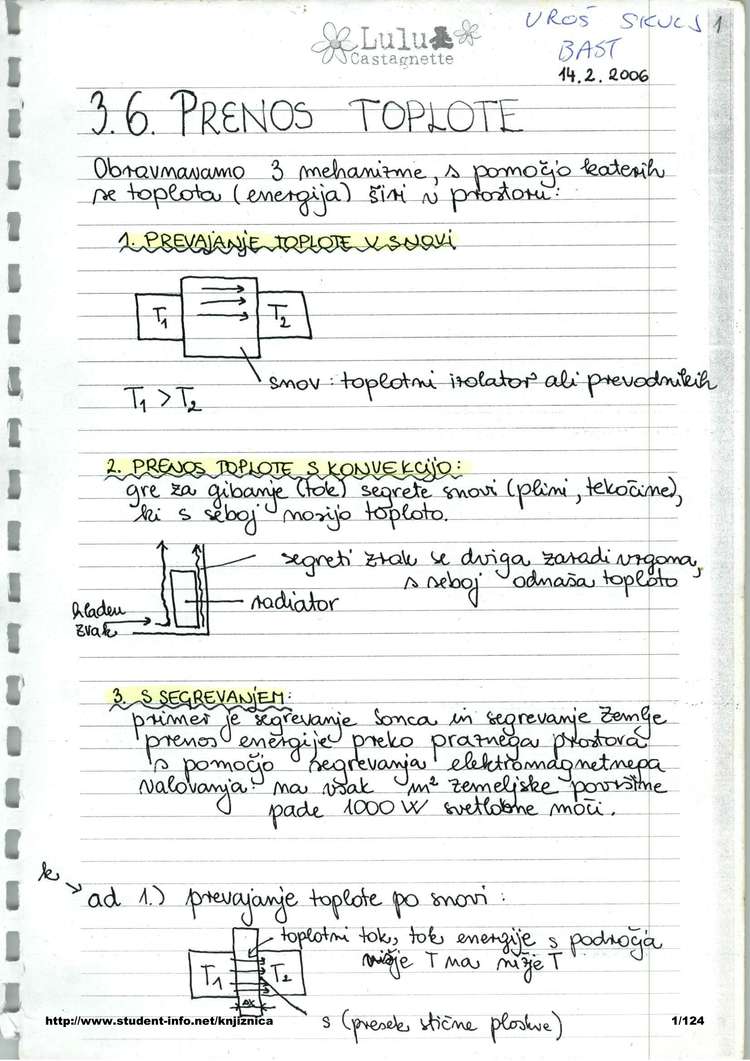 UROŠ SKULJ 1
BAST
14.2.2006
Lulu
Castagnette
3.6. PRENOS TOPLOTE
Obravnavamo 3 mehanizme, s pomočjo katerih
se toplota (energija) širi v prostoru:
1. PREVAJANJE TOPLOTE V SNOVI
T1 T2
snov: toplotni izolator ali prevodnikih
T1 > T2
2. PRENOS TOPLOTE S KONVEKCIJO:
gre za gibanje (tok) segrete snovi (plini, tekočine),
ki s seboj nosijo toploto.
segreti zrak se dviga zaradi vzgona,
s seboj odnaša toploto
radiator
hladen
zrak
3. S SEGREVANJEM:
primer je segrevanje Sonca in segrevanje Zemlje
prenos energije preko praznega prostora
s pomočjo segrevanja elektromagnetnega
valovanja: na vsak m² zemeljske površine
pade 1000 W svetlobne moči.
k
ad 1.) prevajanje toplote po snovi:
toplotni tok, tok energije s področja
višje T na nižje T
T1 T2
Δx
S (presek stične ploskve)
http://www.student-info.net/knjiznica 1/124